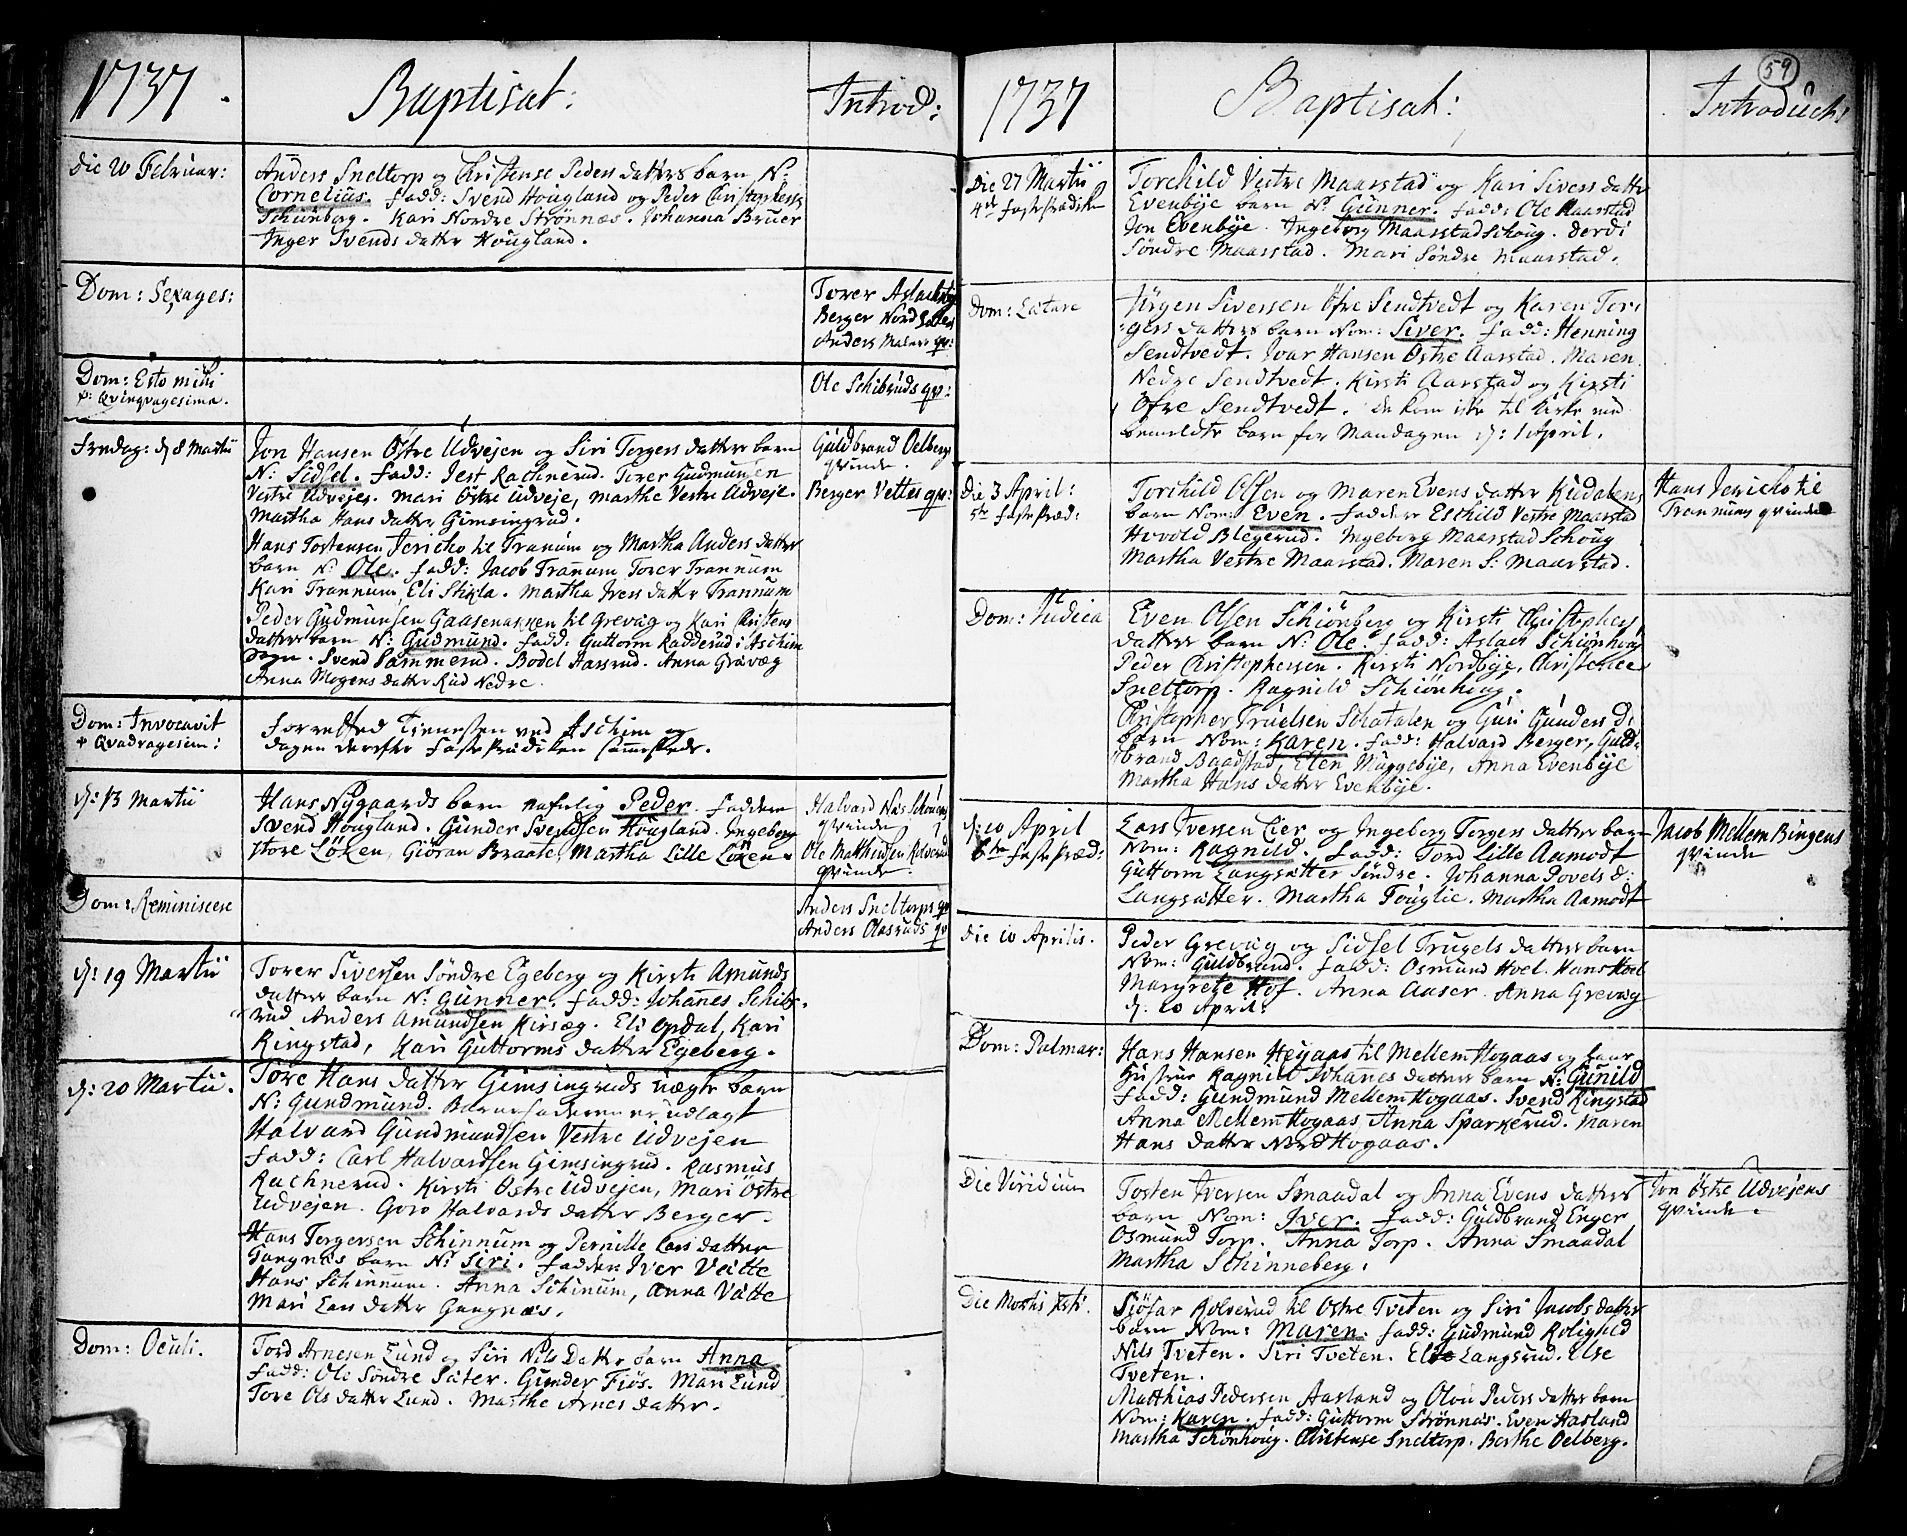 1737. Baptisat: Introd:
Die 20 Februar:
Anders Sneltorp og Christense Peders datters barn N.
Cornelius. fadd: Svend Hougland og Peder Christophers.
Schiönberg. Kari Nordre Strönnæs. Johanna Bruer
Inger Svends datter Hougland.
Dom: Sexages:
Torer
Berger Nord
Anders qv:
Dom: Esto mihi
Qvinqvagesima.
Ole Schibruds qv:
fredag: d 8 Martii
Jon Hansen Östre Udvejen og Siri Torgers datters barn
N: Sidsel. fadd: Jest Rachnerud. Torer Gudmunsen
Vestre Udvejen. Mari Östre Udveje, Marthe Vestre Udveje.
Martha Hans datter Gimsingrud.
Guldbrand Oelbergs
qvinde.
Berger Vettes qv:
Hans Tostensen Jericho til Tranum og Martha Anders datter
barn N: Ole. fadd: Jacob Trannum Torer Trannum
Kari Trannum, Eli Stikla. Martha Ivers datter Trannum
Peder Gudmunsen Gaasenassen til Grevæg og Kari Christens
datters barn N: Gudmund. fadd: Guttorm Radderud i Aschim
Sogn. Svend Sammerud. Bodel Aassrud. Anna Grævæg
Anna Mogens datter Rud Nedre.
Dom: Invocavit
Qvadragesim:
forretted Tienesten ved Aschim og
dagen derefter faste Prædiken sammesteds.
d: 13 Martii
Hans Nygaards barn nafnlig Peder. faddere
Svend Hougland. Gunder Svendsen Hougland. Ingeberg
Store Löken, Giöran Braate, Martha Lille Löken.
Halvard Næs
qvinde
Ole Matthissen Kolverud
qvinde.
Dom: Reminiscere
Anders Sneltorps qv
Anders Olasruds qv
d: 19 Martii
Torer Siversen Söndre Egeberg og Kirsti Amunds
datters barn N: Gunner. fadd: Johannes Schib-
rud Anders Amundsen Kirsæg. Eli Opdal, Kari
Ringstad, Kari Guttorms datter Egeberg.
d: 20 Martii.
Tore Hans datter Gimsingruds uægte barn
N: Gundmund. Barnefaderen er udlagt
Halvard Gundmundsen Vestre Udvejen
fadd: Carl Halvardsen Gimsingrud. Rasmus
Rachnerud. Kirsti Östre Udvejen, Mari Östre
Udvejen. Goro Halvards datter Berger.
Hans Torgersen Schinnum og Pernille Lars datter
Gangnæs barn N: Siri. fadder Iver Vätte
Hans Schinnum. Anna Schinum, Anna Vätte
Mari Lars datter Gangnæs.
Dom: Oculi.
Tord Arnesen Lund og Siri Nils Datters barn Anna
fadd: Ole Söndre Säter. Gunder Fiös. Mari Lund
Tore Ols datter Lund. Marthe Arnes datter.
59
1737 Baptisat: Introduct:
Die 27 Martii
4de faste Prædiken
Torchild Vestre Maarstad og Kari Sivers datter
Evenbye barn N: Gunner. fadd: Ole Maarstad
Jon Evenbye. Ingeborg Maarstad Schoug. Berdi
Söndre Maarstad. Mari Söndre Maarstad.
Dom: Lætare
Jörgen Siversen Öfre Sendtvedt og Karen Tor-
gers datters barn Nom: Siver. fadd: Henning
Sendtvedt. Ivar Hansen Östre Aarstad. Maren
Nedre Sendtvedt. Kirsti Aarstad og Kirsti
Öfre Sendtvedt. De kom ikke til Kirke med
bemeldte barn for Mandagen d: 1 April.
Die 3 April:
5te faste Præd:
Torchild Olsen og Maren Evens datter Kudalens
barn Nom: Even. faddere Eschild Vestre Maarstad
Hovold Blegerud. Ingeborg Maarstad Schoug
Martha Vestre Maarstad. Maren S: Maarstad.
Hans Jericho til
Trannums qvinde
Dom: Judica
Even Olsen Schiönberg og Kirsti Christophers
datters barn N: Ole. fadd: Aslach Schiönhoug
Peder Christophersen. Kirsti Nordbye, Christense
Sneltorp. Ragnild Schiönhoug.
Christopher Truelsen Schatalen og Guri Gunders D:
barn Nom: Karen. fadd: Halvard Berger, Guld-
brand Baadstad, Elen Muggebye, Anna Evenbye
Martha Hans datter Evenbye.
d: 10 April
6te faste Præd:
Lars Iversen Lier og Ingeborg Torgers datters barn
Nom: Ragnild. fadd: Tord Lille Aamodt
Guttorm Langsätter Söndre. Johanna Povels d:
Langsätter. Martha Fouglie. Martha Aamodt
Jacob Mellem Bingens
qvinde
Die 10 Aprilis.
Peder Grevæg og Sidsel Trugels datters barn
Nom: Guldbrand. fadd: Osmund Hoel. Hans Hoel
Margrete Hof. Anna Aaser. Anna Grevæg
d: 10 April:
Dom: Palmar:
Hans Hansen Heyaas til Mellem Hogaas og hans
Hustrue Ragnild Johannes datters barn N: Gunild
fadd: Gundmund Mellem Hogaas. Svend Ringstad
Anna Mellem Hogaas, Anna Sparkerud. Maren
Hans datter Nord Hogaas.
Die Viridium
Tosten Iversen Smaadal og Anna Evens datters
barn Nom: Iver. fadd: Guldbrand Enger
Osmund Torp. Anna Torp. Anna Smaadal
Martha Schinneberg.
Jon Östre Udvejens
qvinde.
Die Mortis Xsti.
Siöfar Kolverud til Östre Tveten og Siri Jacobs datter
barn Nom: Maren. fadd: Gudmund Kolighed
Nils Tveten. Siri Tveten. Else Langsrud. Else
Tveten.
Matthias Pedersen Aasland og Olou Peders datters barn
Nom: Karen. fadd: Guttorm Strönnæs. Even Hasland
Martha Schönhoug. Christense Sneltorp. Berthe Oelberg.